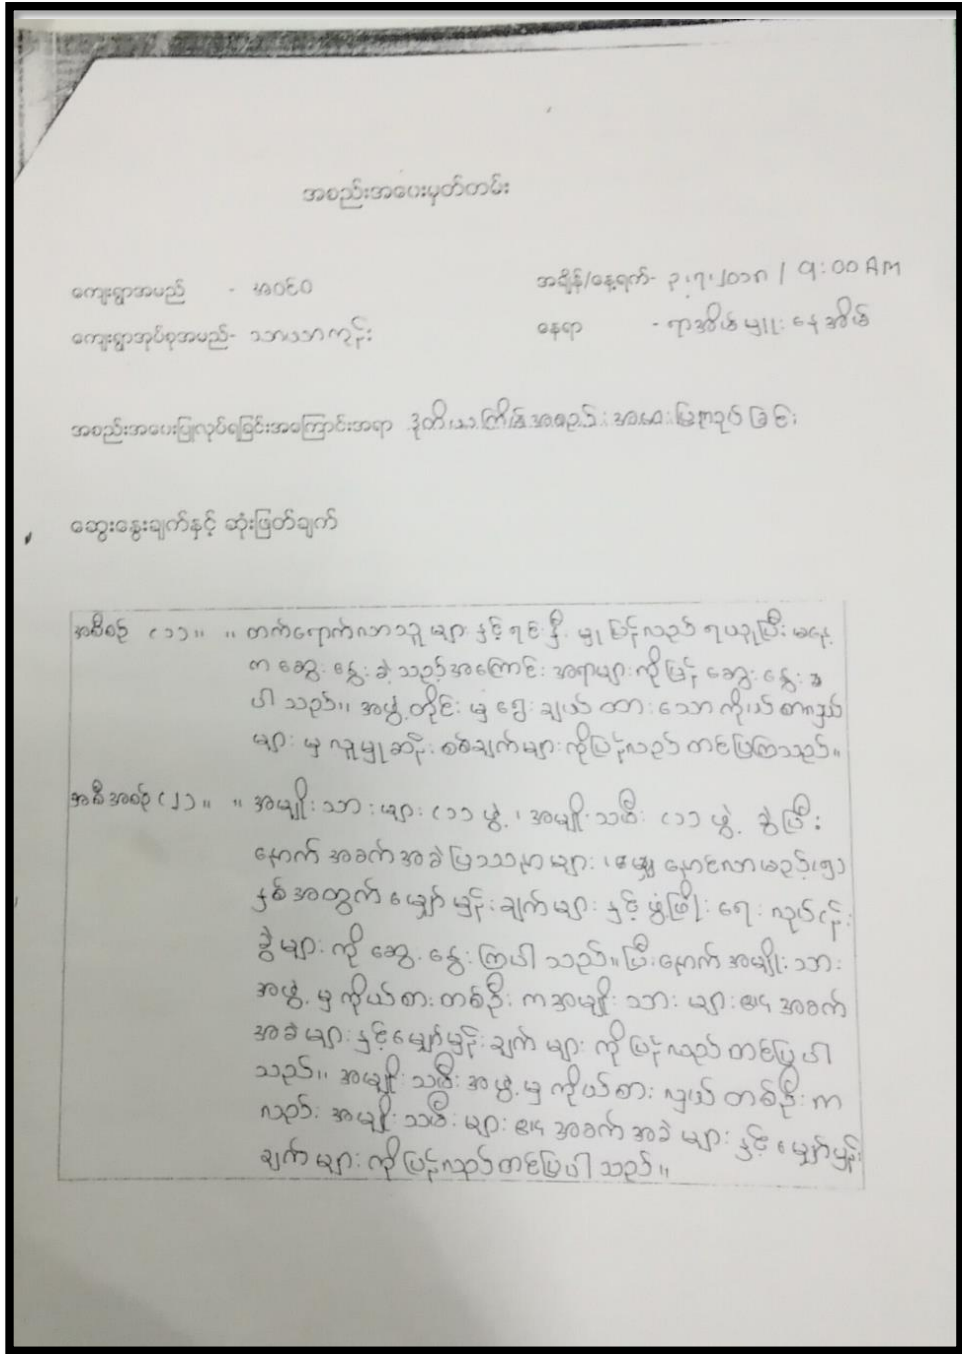 အစည်းအဝေးမှတ်တမ်း
ကျေးရွာအမည် -
အချိန်/နေ့ရက်- ၃.၇.၂၀၁၈ / 9:00 AM
ကျေးရွာအုပ်စုအမည်- သာယာကုန်း
နေရာ - ရာအိမ်မှူးနေအိမ်
အစည်းအဝေးပြုလုပ်ရခြင်းအကြောင်းအရာ ဒုတိယအကြိမ်အစည်းအဝေးပြုလုပ်ခြင်း
ဆွေးနွေးချက်နှင့် ဆုံးဖြတ်ချက်
အစီစဉ် (၁)။ ။ တက်ရောက်လာသူများနှင့်ရင်းနှီးမှုပြန်လည်ရယူပြီး မနေ့
က ဆွေးနွေးခဲ့သည့်အကြောင်းအရာများကိုပြန်ဆွေးနွေး
ပါသည်။ အဖွဲ့တိုင်းမှ ရွေးချယ်ထားသော ကိုယ်စားလှယ်
များမှ လူမှုဆန်းစစ်ချက်များကိုပြန်လည်တင်ပြကြသည်။
အစီအစဉ် (၂)။ ။ အမျိုးသားများ (၁)ဖွဲ့၊ အမျိုးသမီး (၁)ဖွဲ့ ခွဲပြီး
နောက် အခက်အခဲပြဿနာများ၊ နောင်လာမည့်(၅)
နှစ်အတွက် မျှော်မှန်းချက်များနှင့် ဖွံ့ဖြိုးရေးလုပ်ငန်း
ခွဲများကို ဆွေးနွေးကြပါသည်။ ပြီးနောက် အမျိုးသား
အဖွဲ့မှ ကိုယ်စားတစ်ဦးကအမျိုးသားများ၏ အခက်
အခဲများနှင့်မျှော်မှန်းချက်များကို ပြန်လည်တင်ပြပါ
သည်။ အမျိုးသမီးအဖွဲ့မှ ကိုယ်စားလှယ်တစ်ဦးက
လည်း အမျိုးသမီးများ၏ အခက်အခဲများနှင့် မျှော်မှန်း
ချက်များကိုပြန်လည်တင်ပြပါသည်။